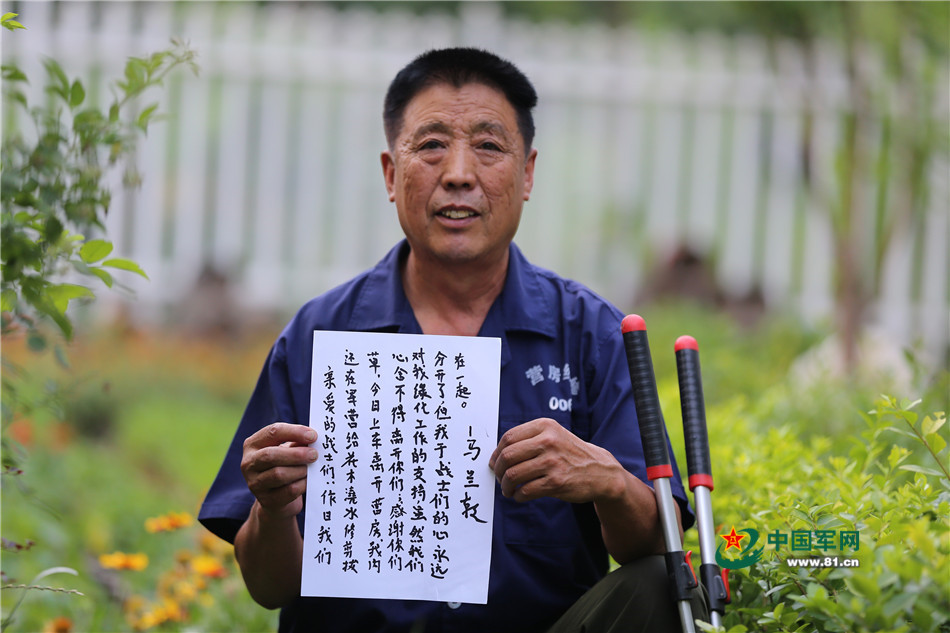 亲爱的战士们:作日我们
还在军营给花木浇水修剪拔
草,今日上车离开营房我内
心舍不得离开你们;感谢你们
对我绿化工作的支持虽然我们
分开了但我于战士们的心永远
在一起。
—马兰
营房
006
中国军网
www.81.cn